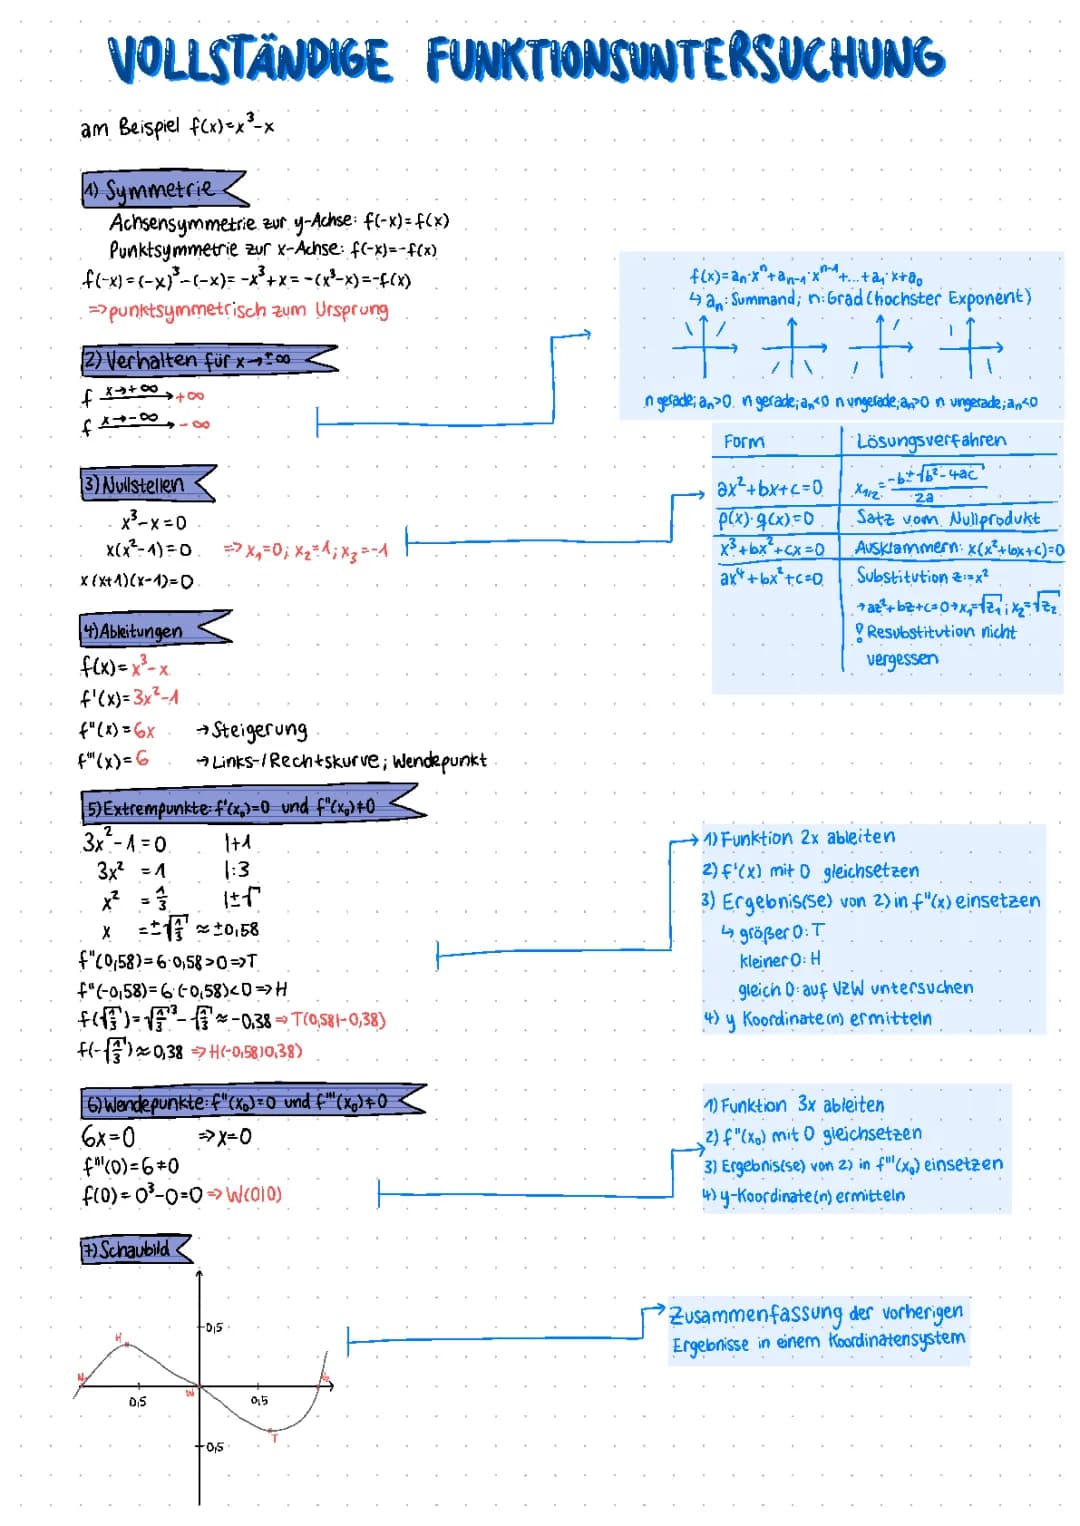 VOLLSTÄNDIGE FUNKTIONSUNTERSUCHUNG
am Beispiel f(x)=x³-x
1) Symmetrie
Achsensymmetrie zur y-Achse: f(-x)=f(x)
Punktsymmetrie zur x-Achse: f(-x)=-f(x)
f(-x)=(-x)³-(-x)=-x³+x=-(x³-x)=-f(x)
=>punktsymmetrisch zum Ursprung
2) Verhalten für x→±∞
f x→+∞ → +∞
f x→-∞ → -∞
f(x)=aₙ·xⁿ+aₙ₋₁·xⁿ⁻¹+...+a₁·x+a₀
↳ aₙ: Summand; n: Grad (höchster Exponent)
n gerade; aₙ>0 n gerade; aₙ<0 n ungerade; aₙ>0 n ungerade; aₙ<0
3) Nullstellen
x³-x=0
x(x²-1)=0 => x₁=0; x₂=1; x₃=-1
x(x+1)(x-1)=0
Form Lösungsverfahren
ax²+bx+c=0 x₁/₂=-b±√b²-4ac/2a
p(x)·q(x)=0 Satz vom Nullprodukt
x³+bx²+cx=0 Ausklammern: x(x²+bx+c)=0
ax⁴+bx²+c=0 Substitution z:=x²
→az²+bz+c=0→x₁=√z₁; x₂=√z₂
! Resubstitution nicht
vergessen
4) Ableitungen
f(x)=x³-x
f'(x)=3x²-1
f"(x)=6x → Steigerung
f'''(x)=6 → Links-/Rechtskurve; Wendepunkt
5) Extrempunkte: f'(x₀)=0 und f"(x₀)≠0
3x²-1=0 |+1
3x² =1 |:3
x² =1/3 |±√
x =±√1/3 ≈±0,58
f"(0,58)=6·0,58>0=>T
f"(-0,58)=6·(-0,58)<0=>H
f(√1/3)=√1/3³-√1/3≈-0,38 => T(0,58|-0,38)
f(-√1/3)≈0,38 => H(-0,58|0,38)
1) Funktion 2x ableiten
2) f'(x) mit 0 gleichsetzen
3) Ergebnis(se) von 2) in f"(x) einsetzen
↳ größer 0: T
kleiner 0: H
gleich 0: auf VZW untersuchen
4) y Koordinate(n) ermitteln
6) Wendepunkte: f"(x₀)=0 und f'''(x₀)≠0
6x=0 =>x=0
f'''(0)=6≠0
f(0)=0³-0=0 => W(0|0)
1) Funktion 3x ableiten
2) f"(x₀) mit 0 gleichsetzen
3) Ergebnis(se) von 2) in f'''(x₀) einsetzen
4) y-Koordinate(n) ermitteln
7) Schaubild
Zusammenfassung der vorherigen
Ergebnisse in einem Koordinatensystem
0,5
H
N
W
0,5
0,5
T
0,5